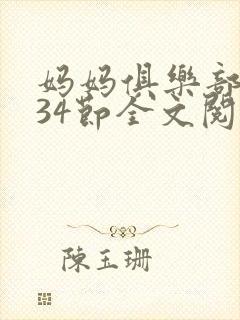 妈妈俱樂部
34節全文閱
陳玉珊